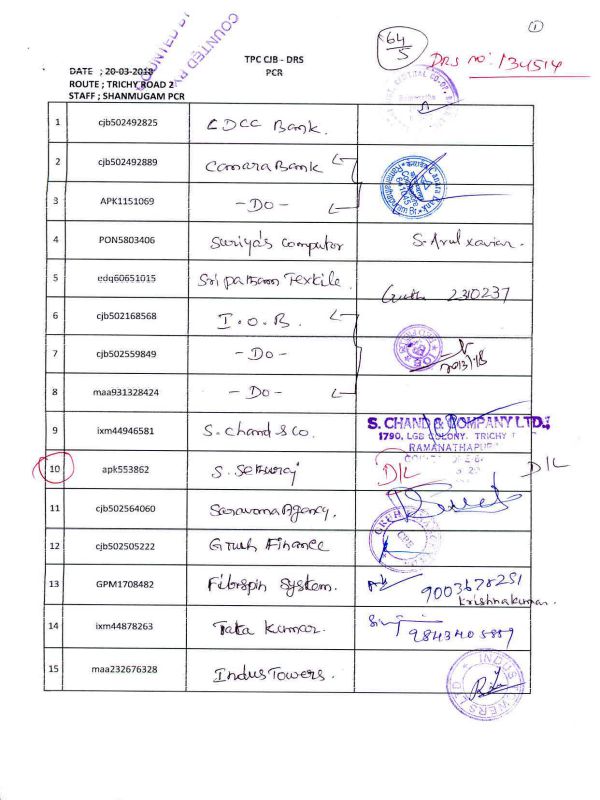 1
COUNTED BY
COUNTED BY
TPC CJB - DRS
PCR
64/5
DRS no: 134514
DATE ; 20-03-2018
ROUTE ; TRICHY ROAD 2
STAFF ; SHANMUGAM PCR
1 cjb502492825 CDCC Bank.
2 cjb502492889 Canara Bank
3 APK1151069 - Do -
4 PON5803406 Suriya's Computer S. Arul xavier.
5 edq60651015 Sri patham Textile. 2310237
6 cjb502168568 I.O.B.
7 cjb502559849 - Do -
8 maa931328424 - Do -
9 ixm44946581 S. Chand & Co. S. CHAND & COMPANY LTD.,
1790, LGB COLONY, TRICHY
RAMANATHAPUR
10 apk553862 S. Sethuraj D/L D/L
11 cjb502564060 Saravana Agency.
12 cjb502505222 Gruh Finance
13 GPM1708482 Fibrspin System. 9003678251
Krishnakumar.
14 ixm44878263 Tata Kumar. 9843405859
15 maa232676328 Indus Towers. INDUS TOWERS LTD